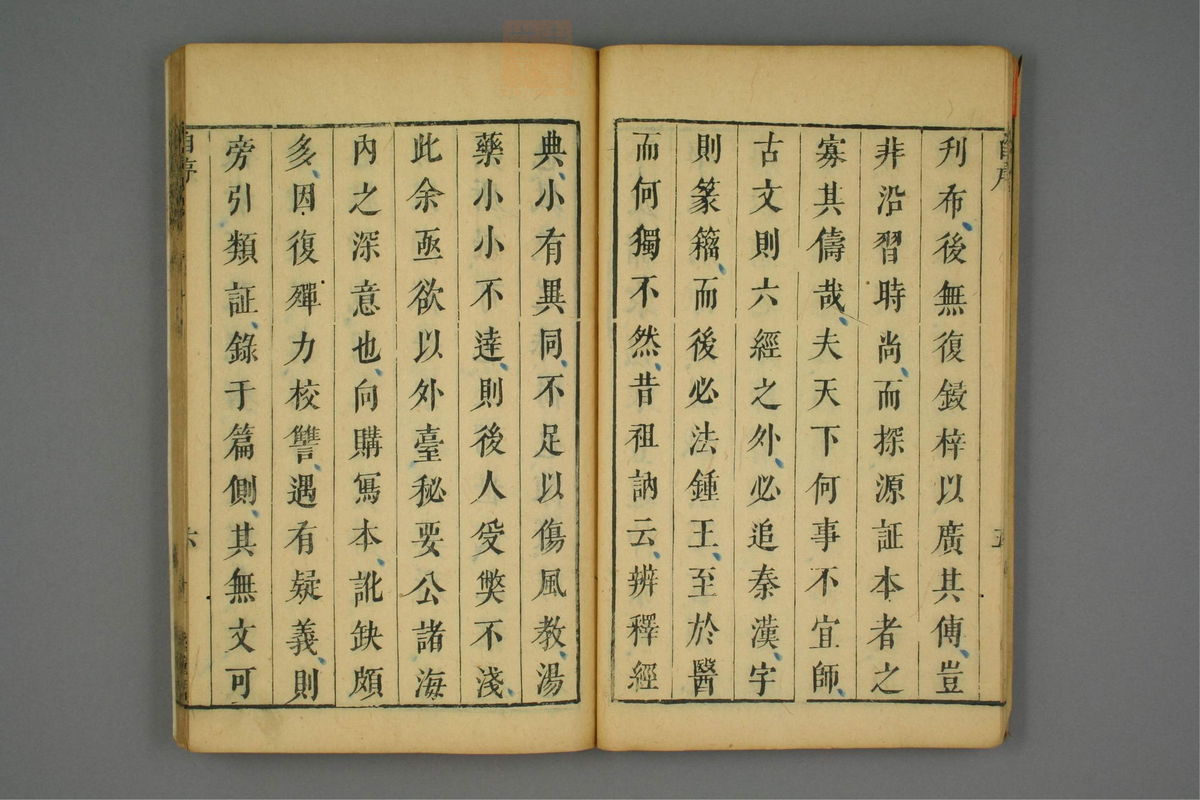 刋布後無復鋟梓以廣其傳豈
非沿習時尚而探源証本者之
寡其儔哉夫天下何事不宜師
古文則六經之外必追秦漢字
則篆籀而後必法鍾王至於醫
而何獨不然昔祖訥云辨釋經
典小有異同不足以傷風教湯
藥小小不達則後人受獘不淺
此余亟欲以外臺秘要公諸海
内之深意也向購寫本訛缺頗
多因復殫力校讐遇有疑義則
旁引類証錄于篇側其無文可
自序
六